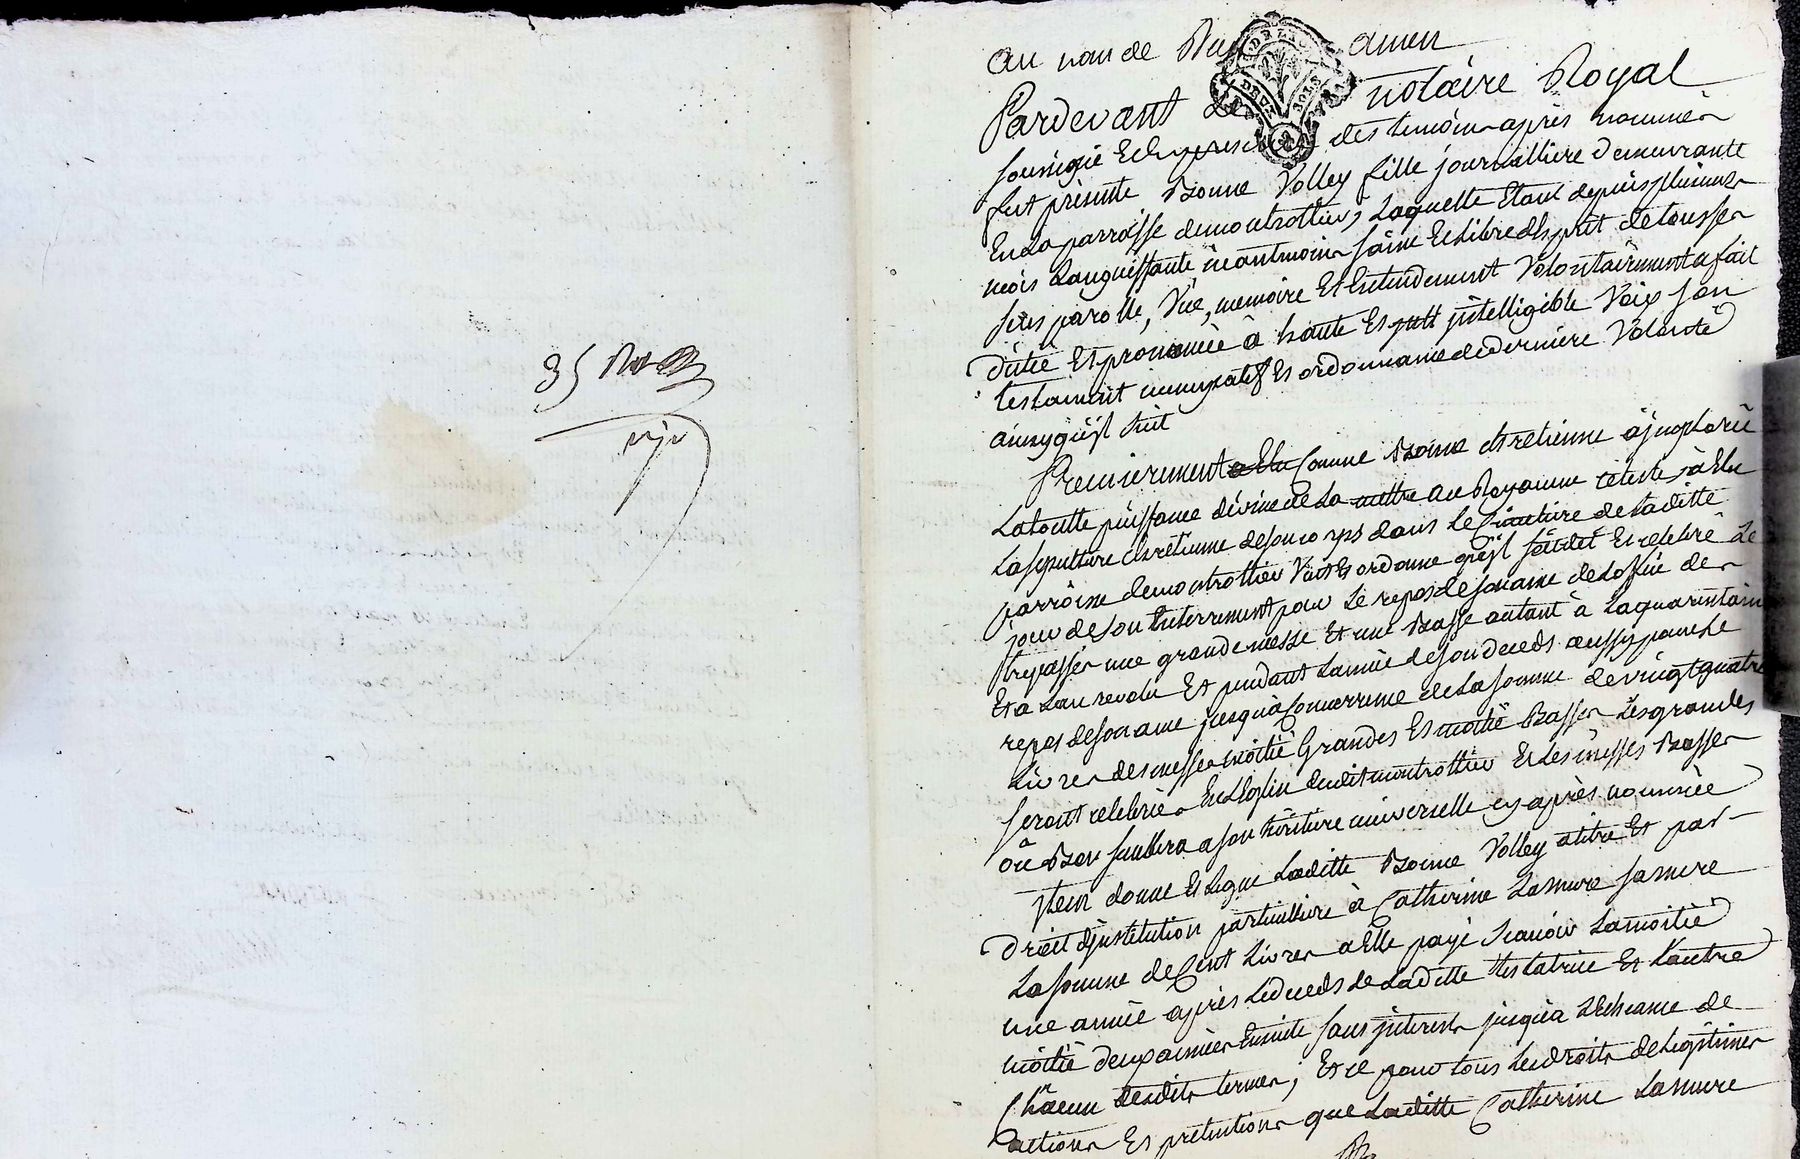 35
au nom de Dieu amen
Pardevant Le notaire Royal
soussigné Et En presence des temoins après nommés
fut présente Bonne Volley fille journalliere demeurante
En La parroisse de montrottier, Laquelle Etant depuis plusieurs
mois Languissante néantmoins saine Et Libre d'Esprit de tous ses
sens parolle, Vüe, memoire Et Entendement Volontairement a fait
dicté Et prononcé à haute Et intelligible Voix son
testament nuncupatif Et ordonnance de derniere Volonté
ainsy qu'jl suit
Premierement comme Bonne chretienne a jmploré
La toutte puissance divine de La mettre au Royaume celeste, a Elu
La sepulture chretienne de son corps dans Le Cimetiere de Laditte
parroisse de montrottier Veut Et ordonne qu'jl soit dit Et celebré Le
jour de son Enterrement pour Le repos de son ame de Loffice des
trepassés une grande messe Et une Basse autant à La quarantaine
Et a Lan revolu Et pendant Lannée de son deceds aussy pour Le
repos de son ame jusqu'à Concurrence de La somme de vingt quatre
Livres des messes moitié Grandes Et moitié Basses Les grandes
seront celebrées En Leglise dudit montrottier Et Les messes Basses
où Bon semblera a son héritiere universelle cy après nommée
Item donne Et Legue Laditte Bonne Volley a titre Et par
droit d'jnstitution particulliere à Catherine Lamure sa mere
La somme de Cent Livres a Elle payé scavoir La moitié
une année après Le deceds de Laditte testatrice Et L'autre
moitié deux années Ensuite sans jnterest jusqu'a L'Echeance de
Chacun desdits termes; Et ce pour tous Les droits de Legitimes
actions Et pretentions que Laditte Catherine Lamure